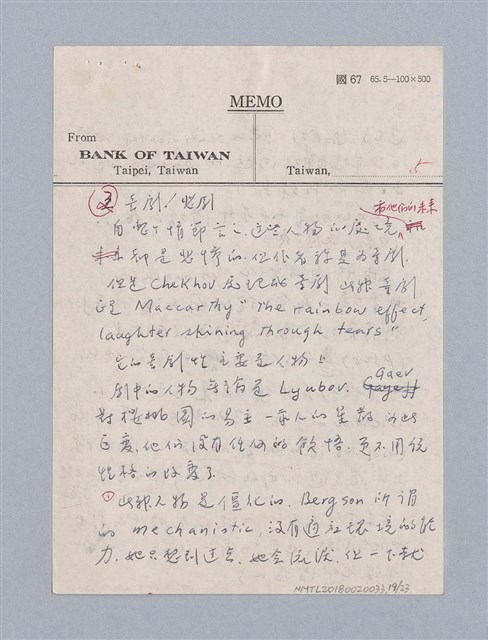 國 67 65.5—100×500
MEMO
From
BANK OF TAIWAN
Taipei, Taiwan
Taiwan, 5
喜劇/悲劇
和他們的未來
情節言之,這些人物的處境
卻是悲慘的,但作者稱是為喜劇.
但是 Chekhov 喜劇 此種喜劇
正是 Maccarthy "The rainbow effect,
laughter shining through tears"
它的喜劇性主要是人物上
劇中的人物 是 Lyubov. Gaev
對櫻桃園的易主一家人的星散
巨變,他們沒有任何的飲悟,更不用說
性格的改變了
① 此種人物是僵化的. Bergson 所謂
的 mechanistic, 沒有適應環境的能
力.她只想到過去,她會流淚,但一下就
NMTL20180020033,19/23